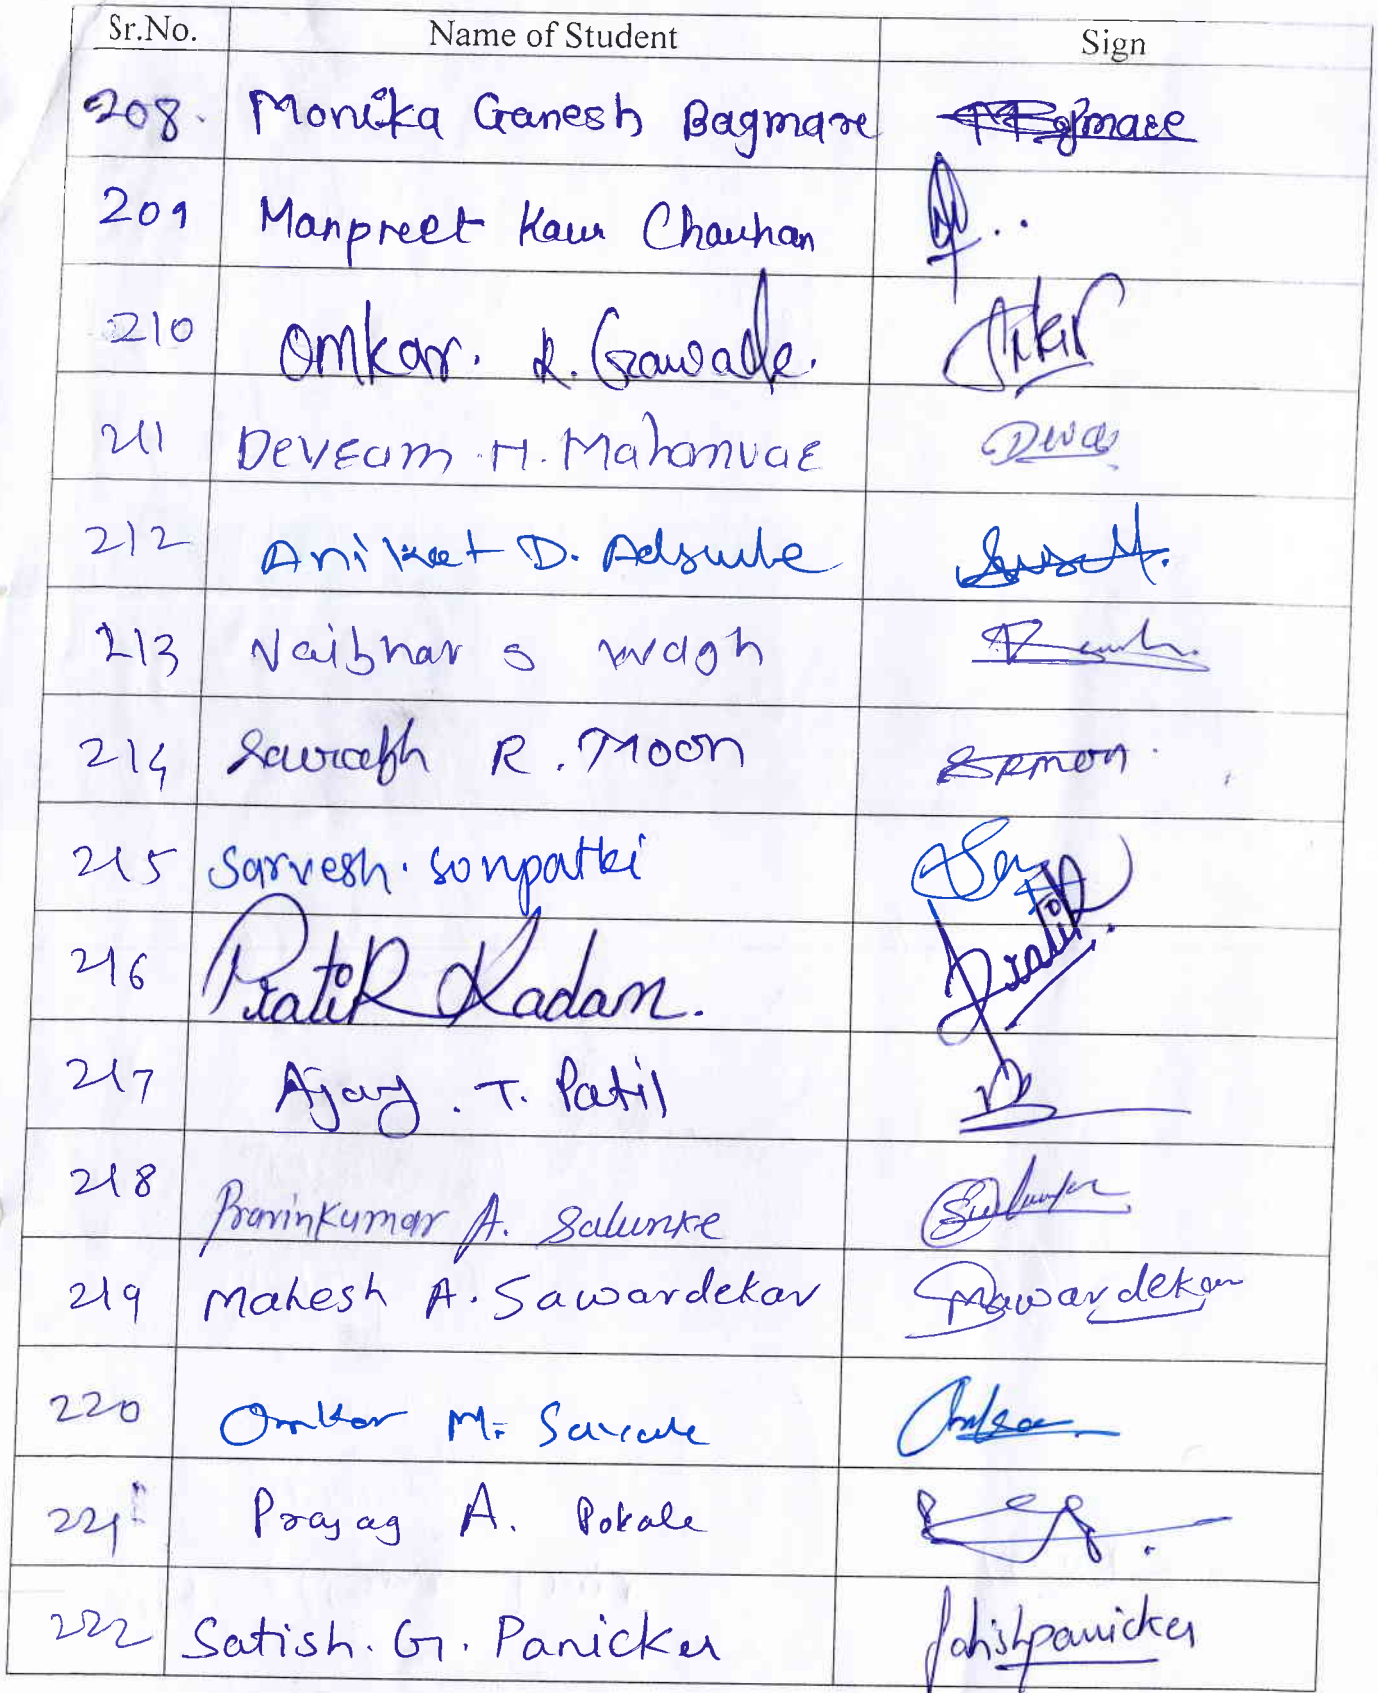 Sr.No. Name of Student Sign
208. Monika Ganesh Bagmare
209 Manpreet Kaur Chauhan
210 Omkar. R. Gawade.
211 Deveam H.
212 Aniket D. Adsule
213 Vaibhav S Wagh
214 Saurabh R. Moon SRMoon
215 Sarvesh. Sonpatki
216 Pratik Kadam. Pratik
217 Ajay. T. Patil
218 Pravinkumar A. Salunke
219 Mahesh A. Sawardekar MSawardekar
220 Omkar M. Omkar
221 Prayag A. Pokale
222 Satish. G. Panicker Satishpanicker